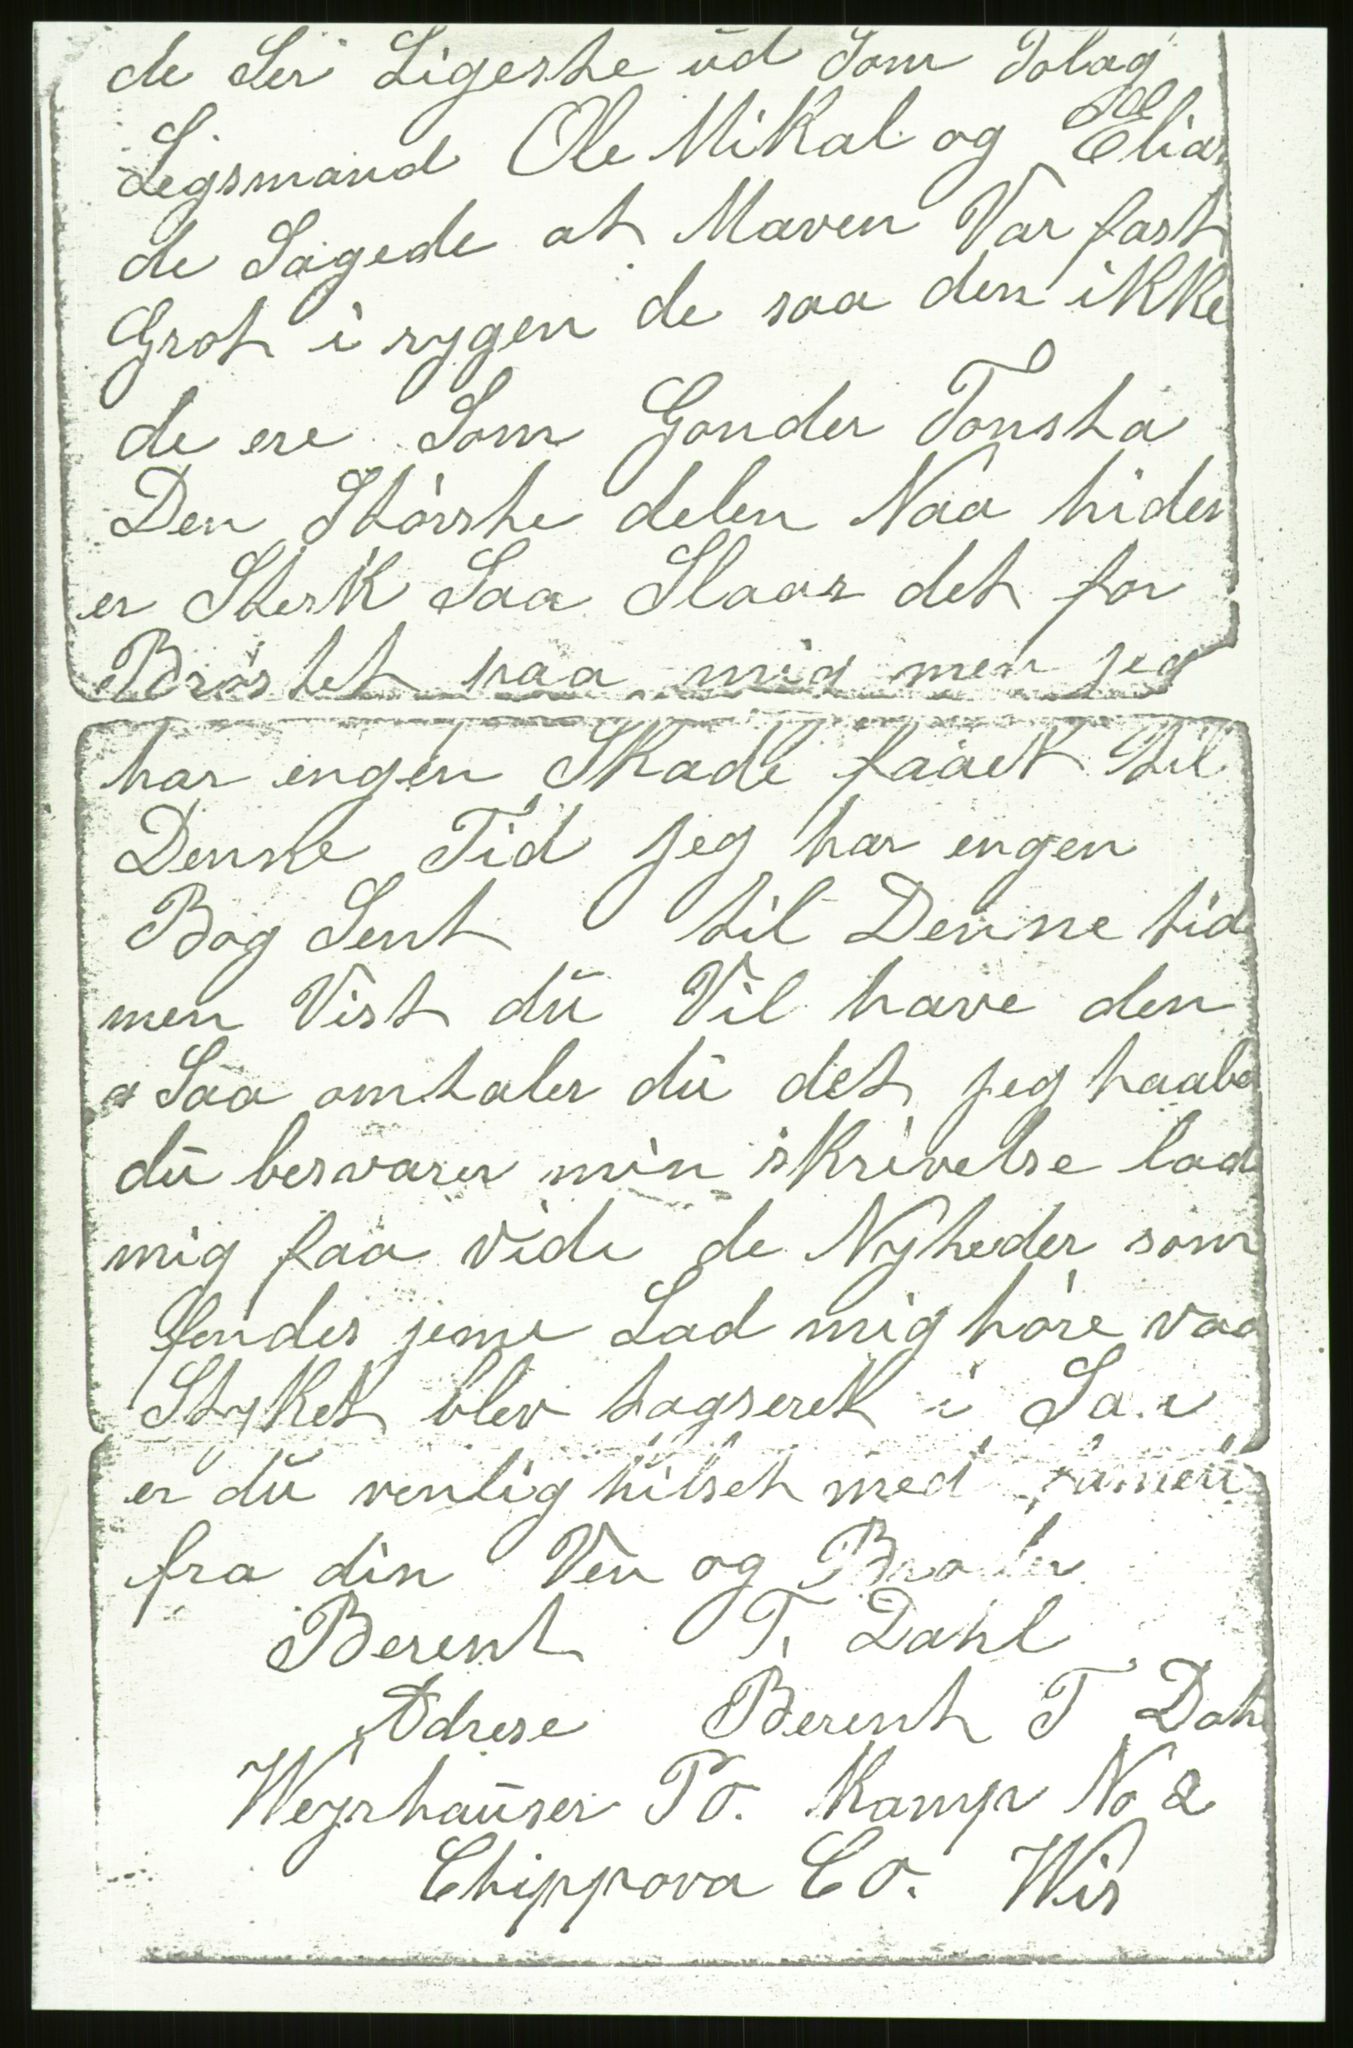 de Ser Ligeste ud Som Tolag
Ole
Legsmand Ole Mikal og Elias
de Sagede at Maven Var fast
Grot i rygen de saa den ikke
de ere Som Gonder Tonsta
Den Största delen Naa hiden
er Sterk Saa Slaar det for
Bröstet paa mig men jeg
har engen Skade faaet til
Denne Tid jeg har engen
Bog Sent til Denne tid
men Vist du Vil have den
Saa omtaler du det jeg haabe
du besvarer min skrivelse lad
mig faa vide de Nyheder som
fendes jeme Lad mig höre vad
Styket blev tagseret i
er du venlig hilset med
fra din Ven og Broder
Berent T. Dahl
Adrese Berent T Dah
Weyrhauser Po. Kamp No 2
Chippova Co. Wis